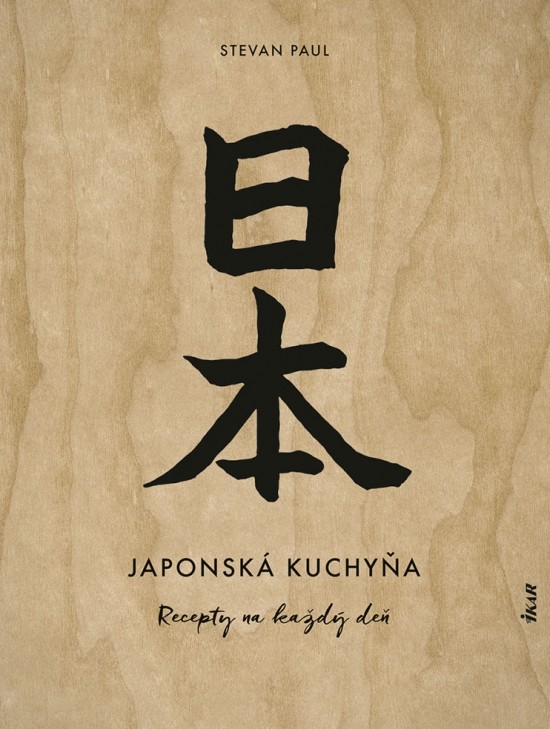 STEVAN PAUL
日
本
JAPONSKÁ KUCHYŇA
Recepty na každý deň
IKAR